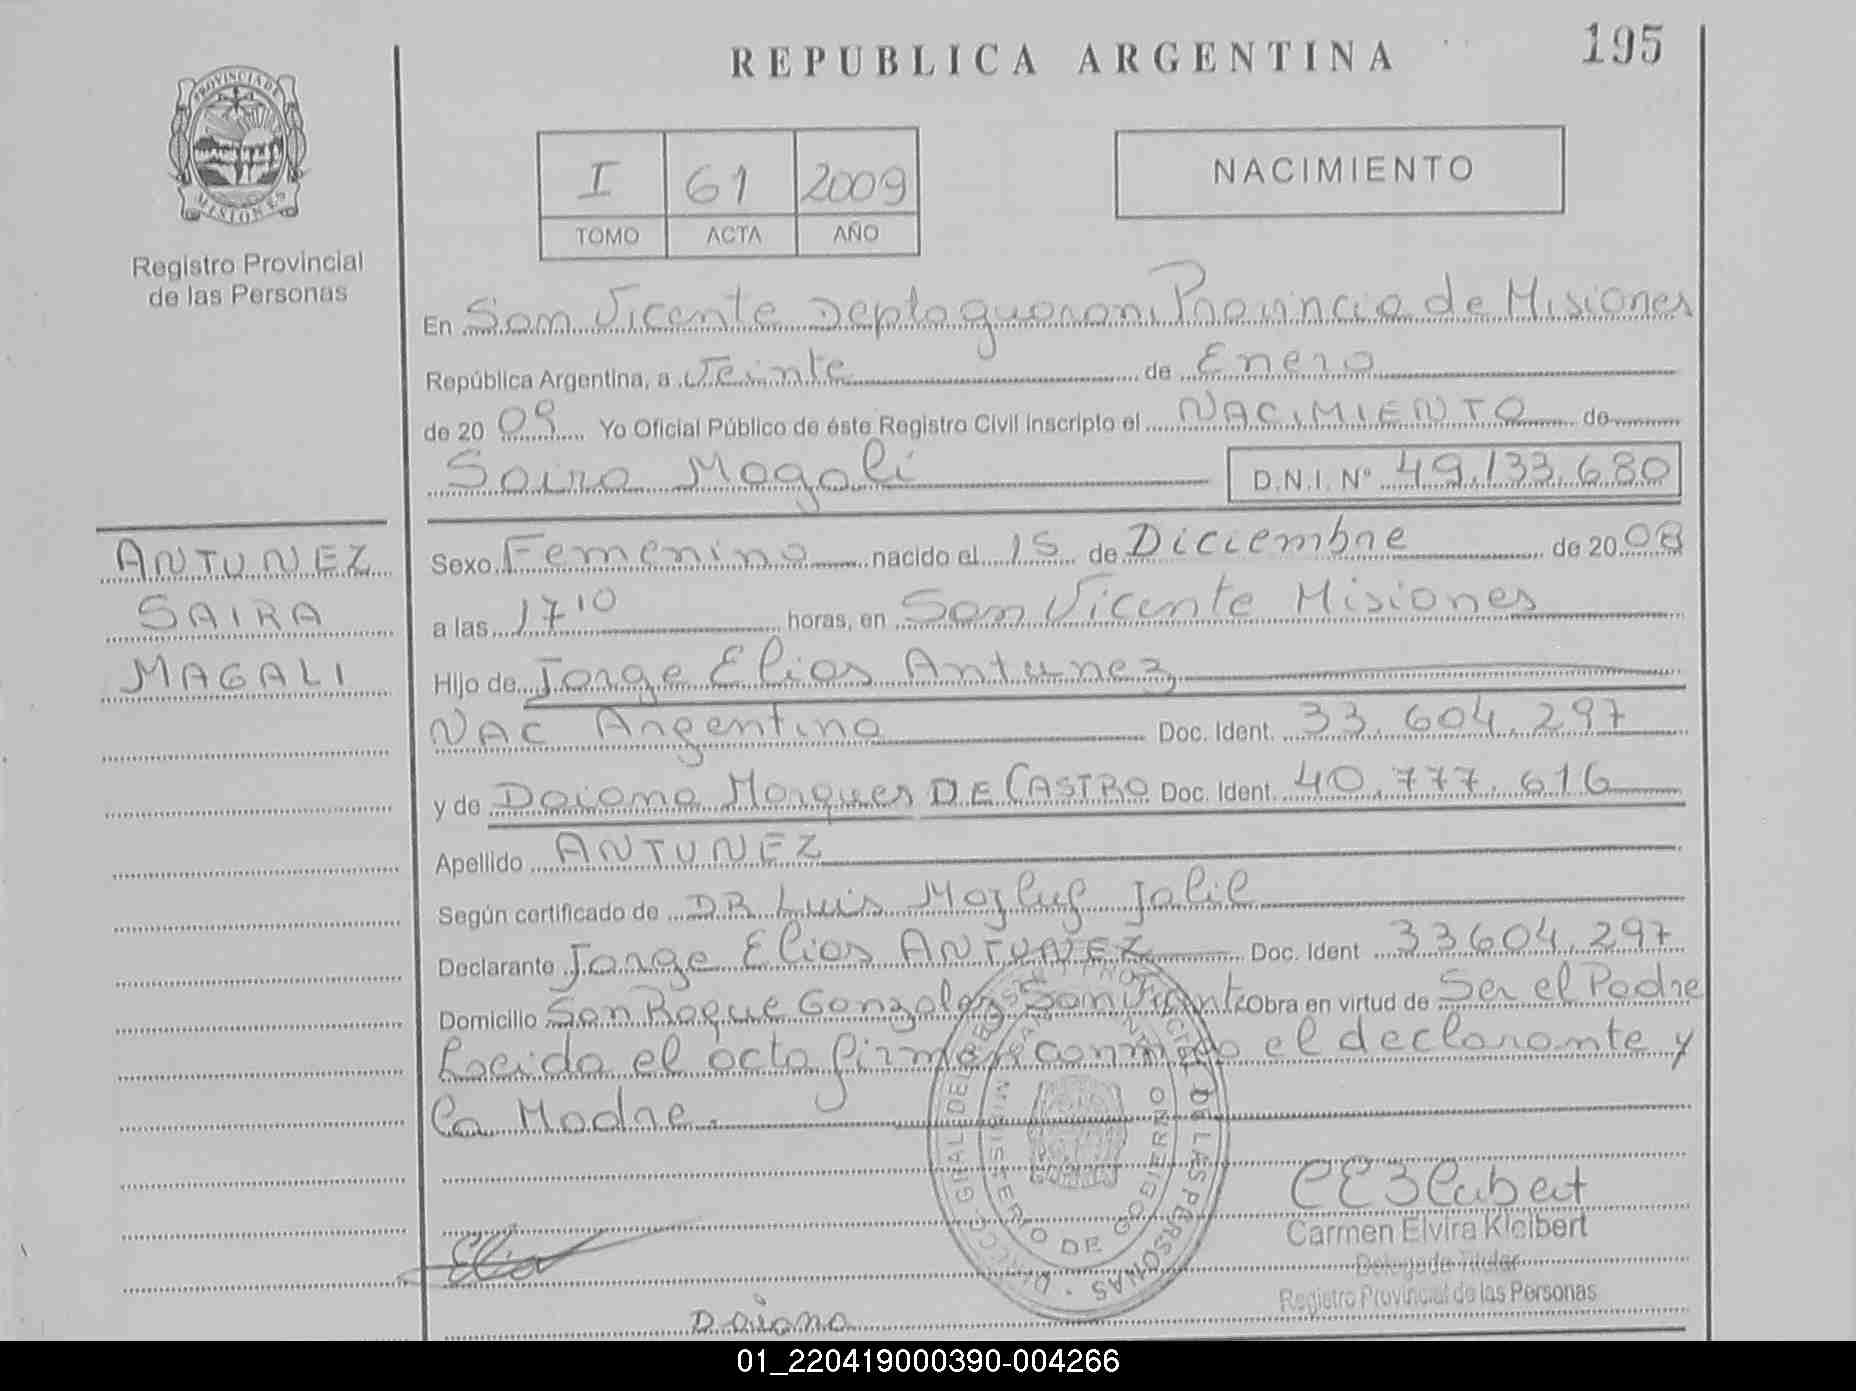 195
REPUBLICA ARGENTINA
PROVINCIA DE
MISIONES
Registro Provincial
de las Personas
I 61 2009
TOMO ACTA AÑO
NACIMIENTO
En San Vicente Depto guarani Provincia de Misiones
República Argentina, a Veinte de Enero
de 2009 Yo Oficial Público de éste Registro Civil inscripto el NACIMIENTO de
Saira Magali D.N.I. Nº 49.133.680
ANTUNEZ
SAIRA
MAGALI
Sexo Femenino nacido el 15 de Diciembre de 2008
a las 17 10 horas, en San Vicente Misiones
Hijo de Jorge Elias Antunez
NAC Argentina Doc. Ident. 33.604.297
y de Daiana Marques DE CASTRO Doc. Ident. 40.777.616
Apellido ANTUNEZ
Según certificado de DR Luis Mazluf Jalil
Declarante Jorge Elias ANTUNEZ Doc. Ident 33604.297
Domicilio San Roque Gonzalez San Vicente Obra en virtud de Ser el Padre
Leida el acta firman conmigo el declarante y
la Madre.
DE LAS PERSONAS
MINISTERIO DE GOBIERNO
Carmen Elvira Kleibert
Delegada Titular
Registro Provincial de las Personas
Elias
Daiana
01_220419000390-004266